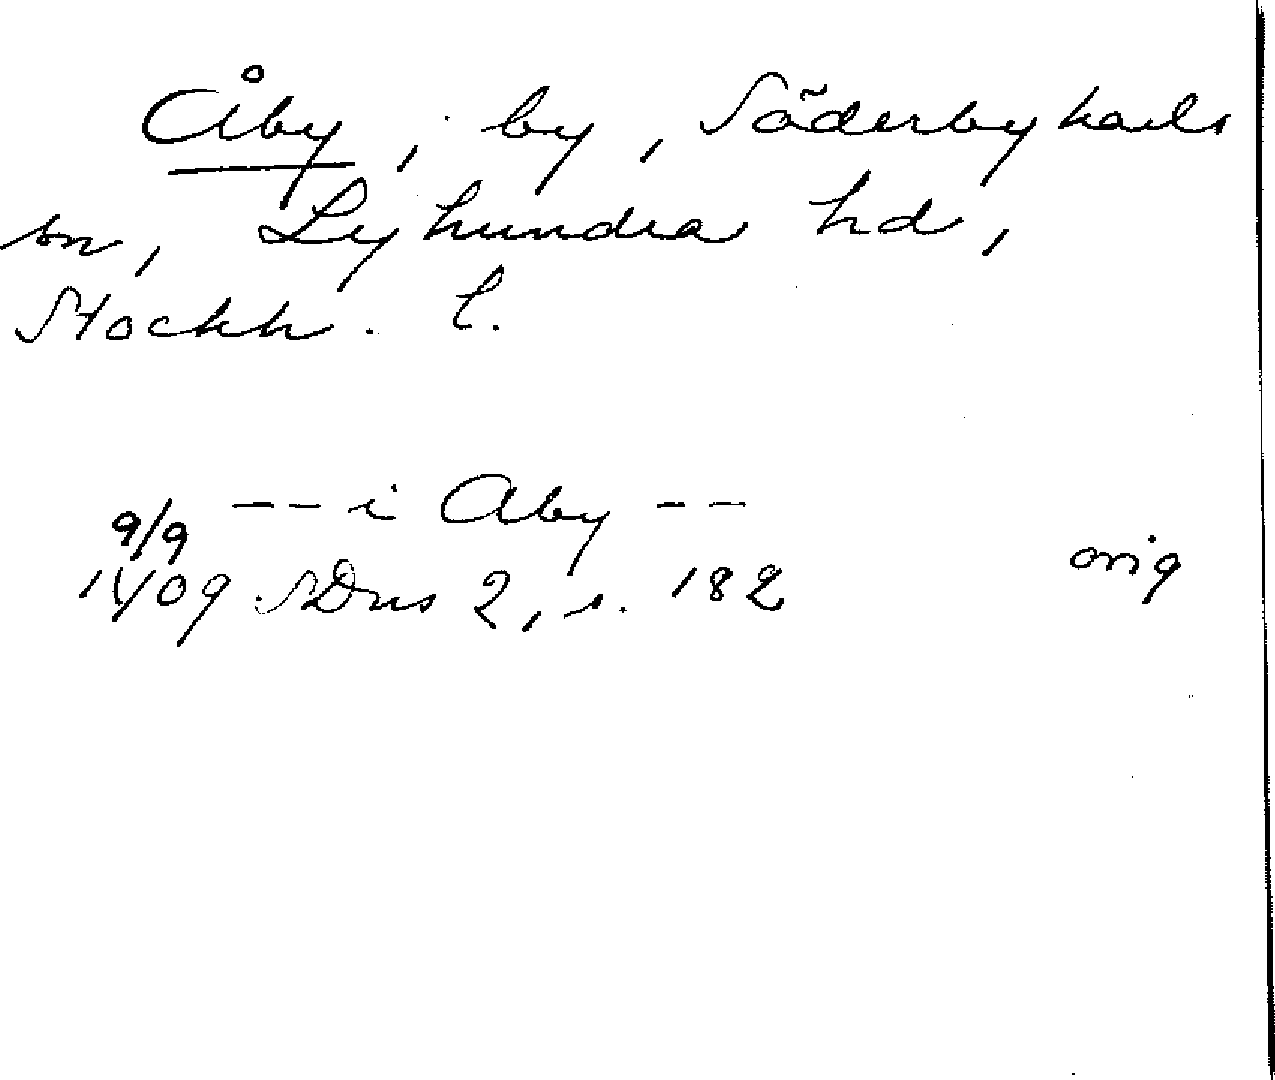 Åby, by, Söderbykarls
sn, Lyhundra hd,
Stockh. l.
-- i Aby --
9/9
1409 SDns 2, s. 182
orig